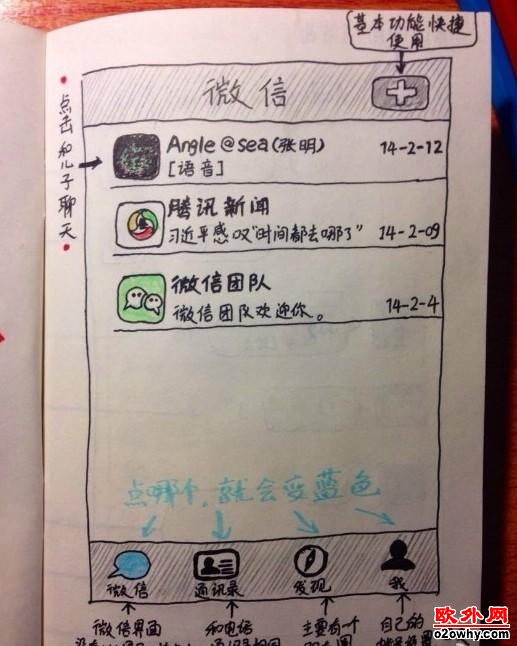 基本功能快捷
使用
微信
点击和儿子聊天
Angle@sea(张明)
14-2-12
[语音]
腾讯新闻
习近平感叹"时间都去哪了"
14-2-09
微信团队
微信团队欢迎你。
14-2-4
点哪个,就会变蓝色
微信
通讯录
发现
我
微信界面
和电话
主要有一个
自己的
欧外网
o2owhy.com